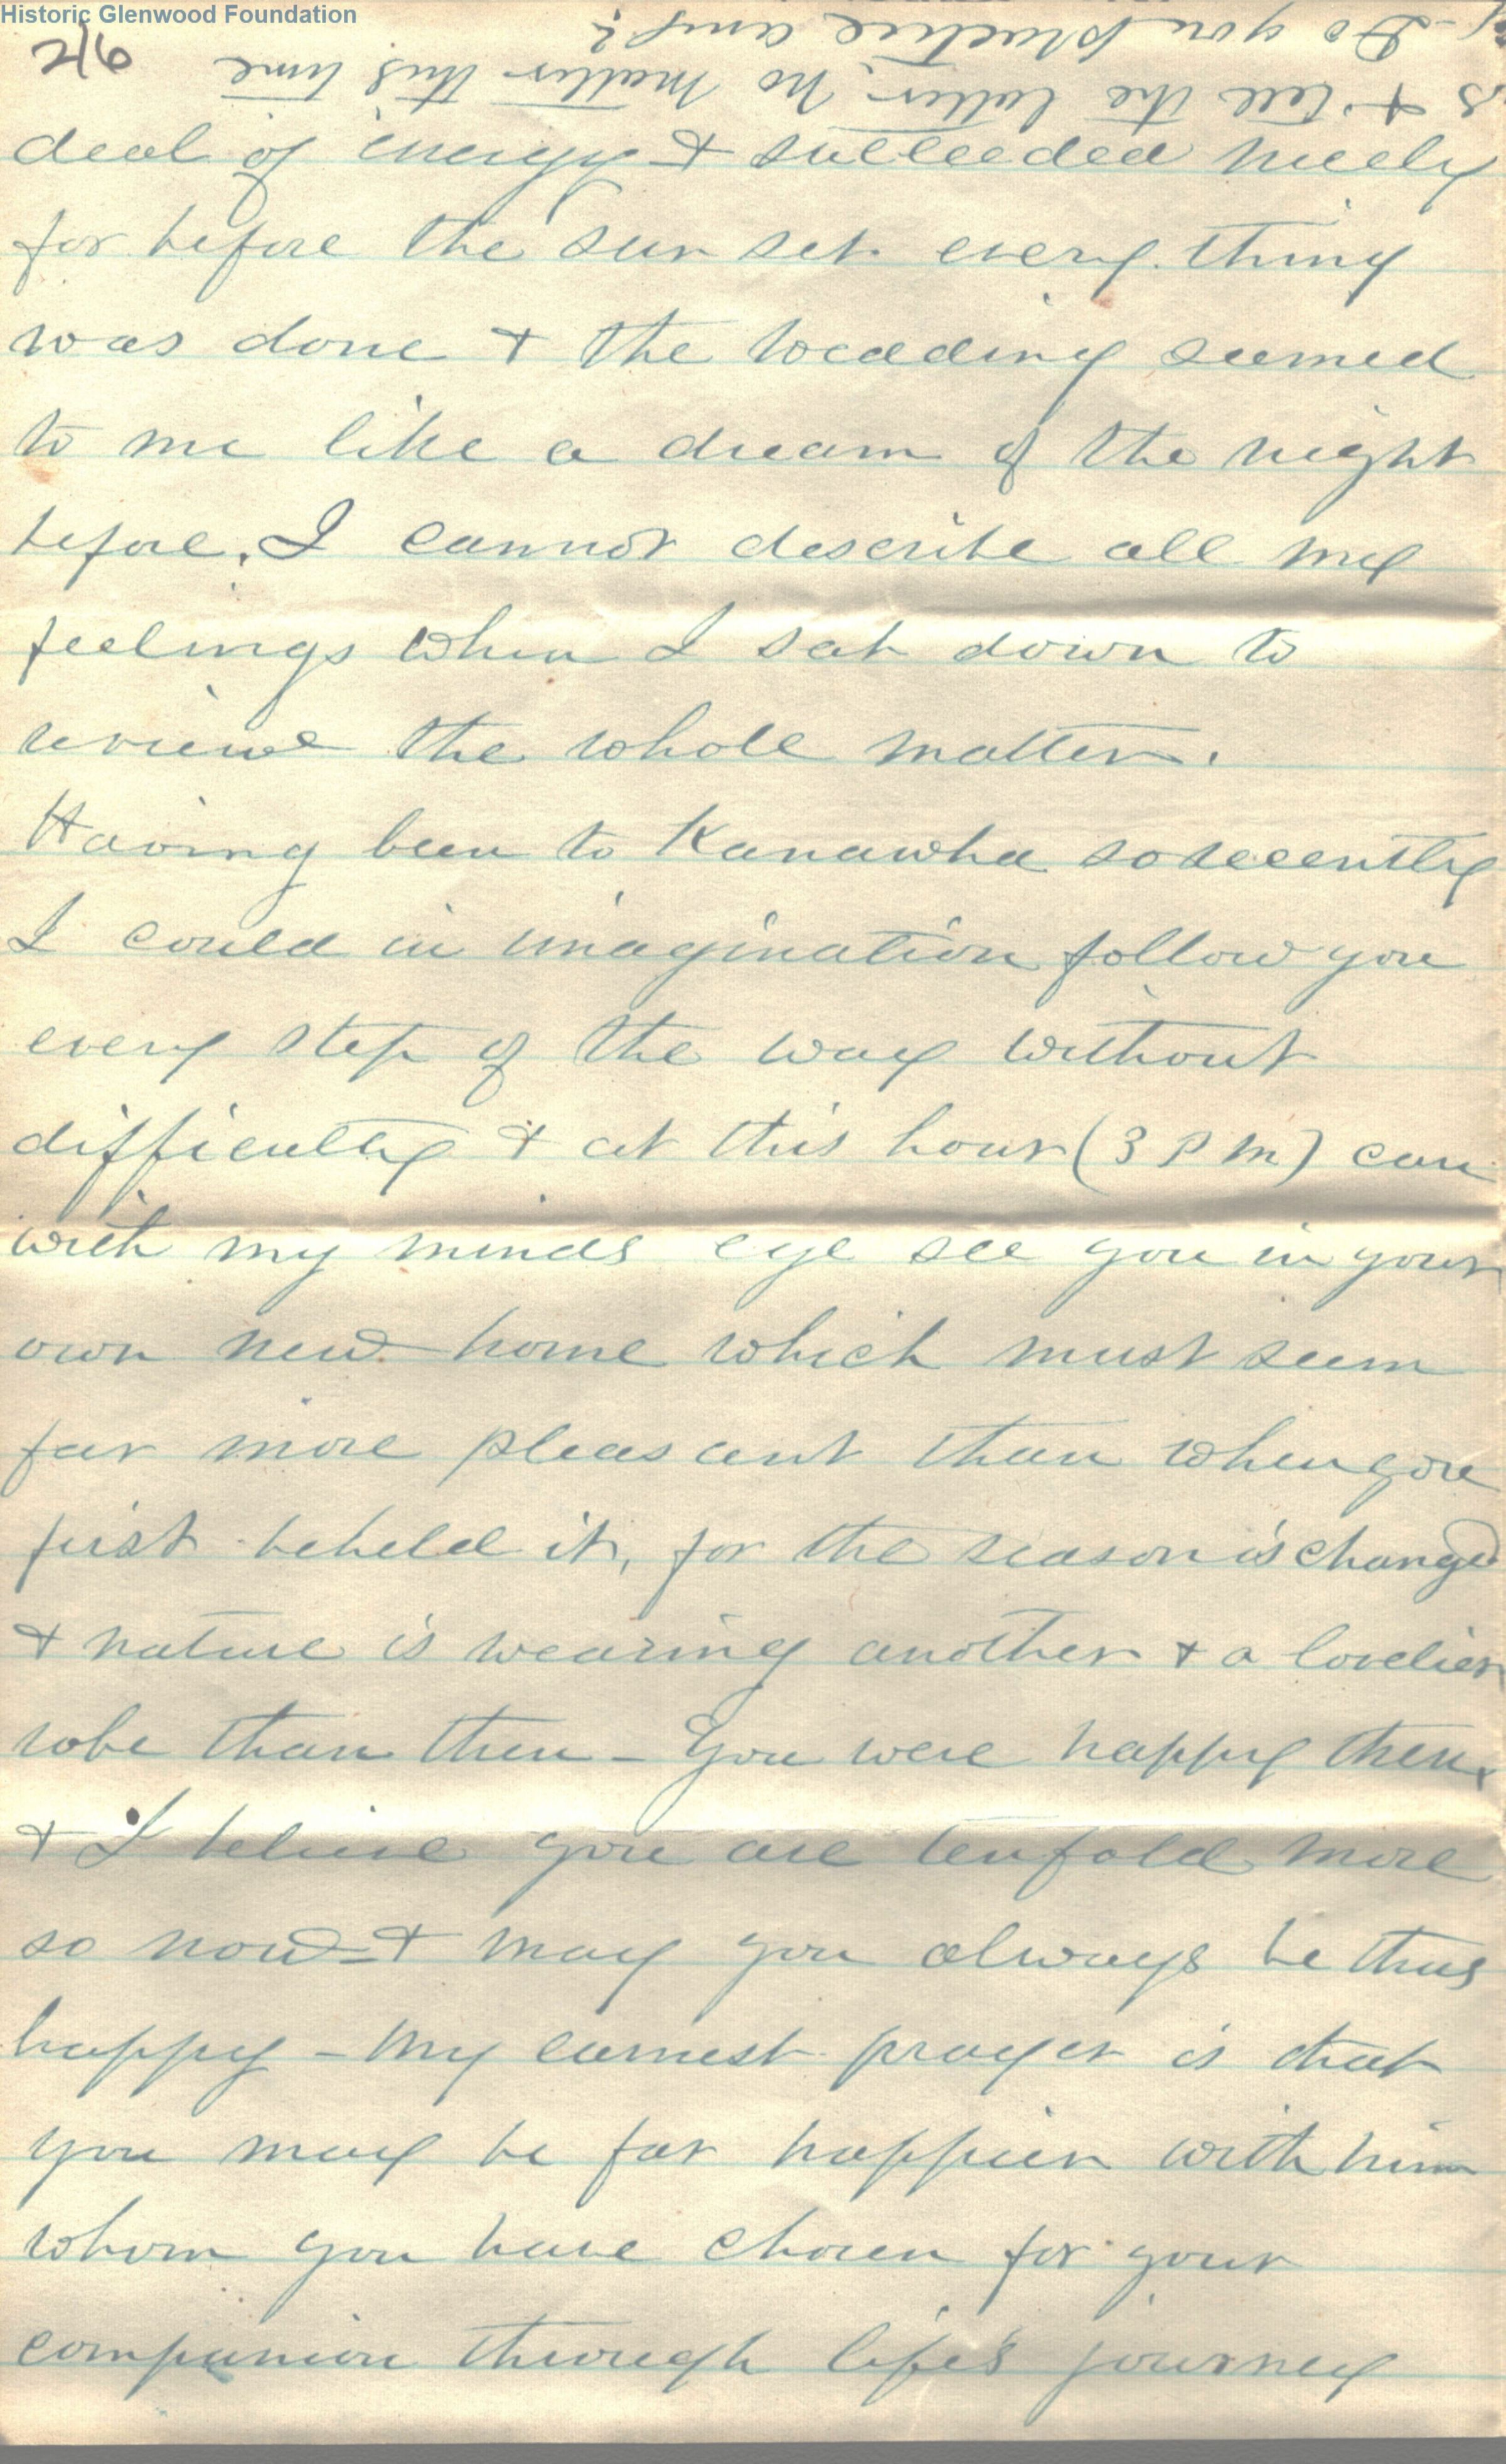 Historic Glenwood Foundation
2/6
& tell the latter, no matter this time
Do you practice any?
deal of energy & succeeded nicely
for before the sun set every thing
was done & the wedding seemed
to me like a dream of the night
before. I cannot describe all my
feelings when I sat down to
review the whole matter.
Having been to Kanawha so recently
I could in imagination follow you
every step of the way without
difficulty & at this hour (3 P M) can
with my minds eye see you in your
own new home which must seem
far more pleasant than when you
first beheld it, for the season is changed
& nature is wearing another & a lovelier
robe than then - You were happy then,
& I believe you are tenfold more
so now - & may you always be thus
happy - My earnest prayer is that
you may be far happier with him
whom you have chosen for your
companion through life's journey